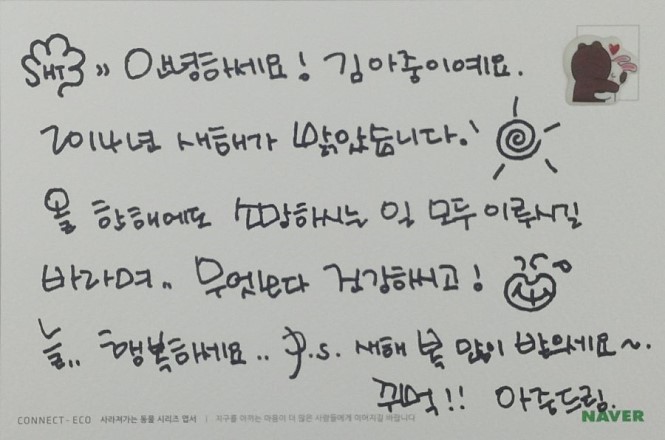 SHT3 " 안녕하세요! 김아중이예요.
2014년 새해가 밝았습니다.
올 한해에도 소망하시는 일 모두 이루시길
바라며.. 무엇보다 건강하시고!
늘.. 행복하세요.. P.S. 새해 복 많이 받으세요~.
꾸벅!! 아중드림.
CONNECT-ECO 사라져가는 동물 시리즈 엽서 | 지구를 아끼는 마음이 더 많은 사람들에게 이어지길 바랍니다
NAVER